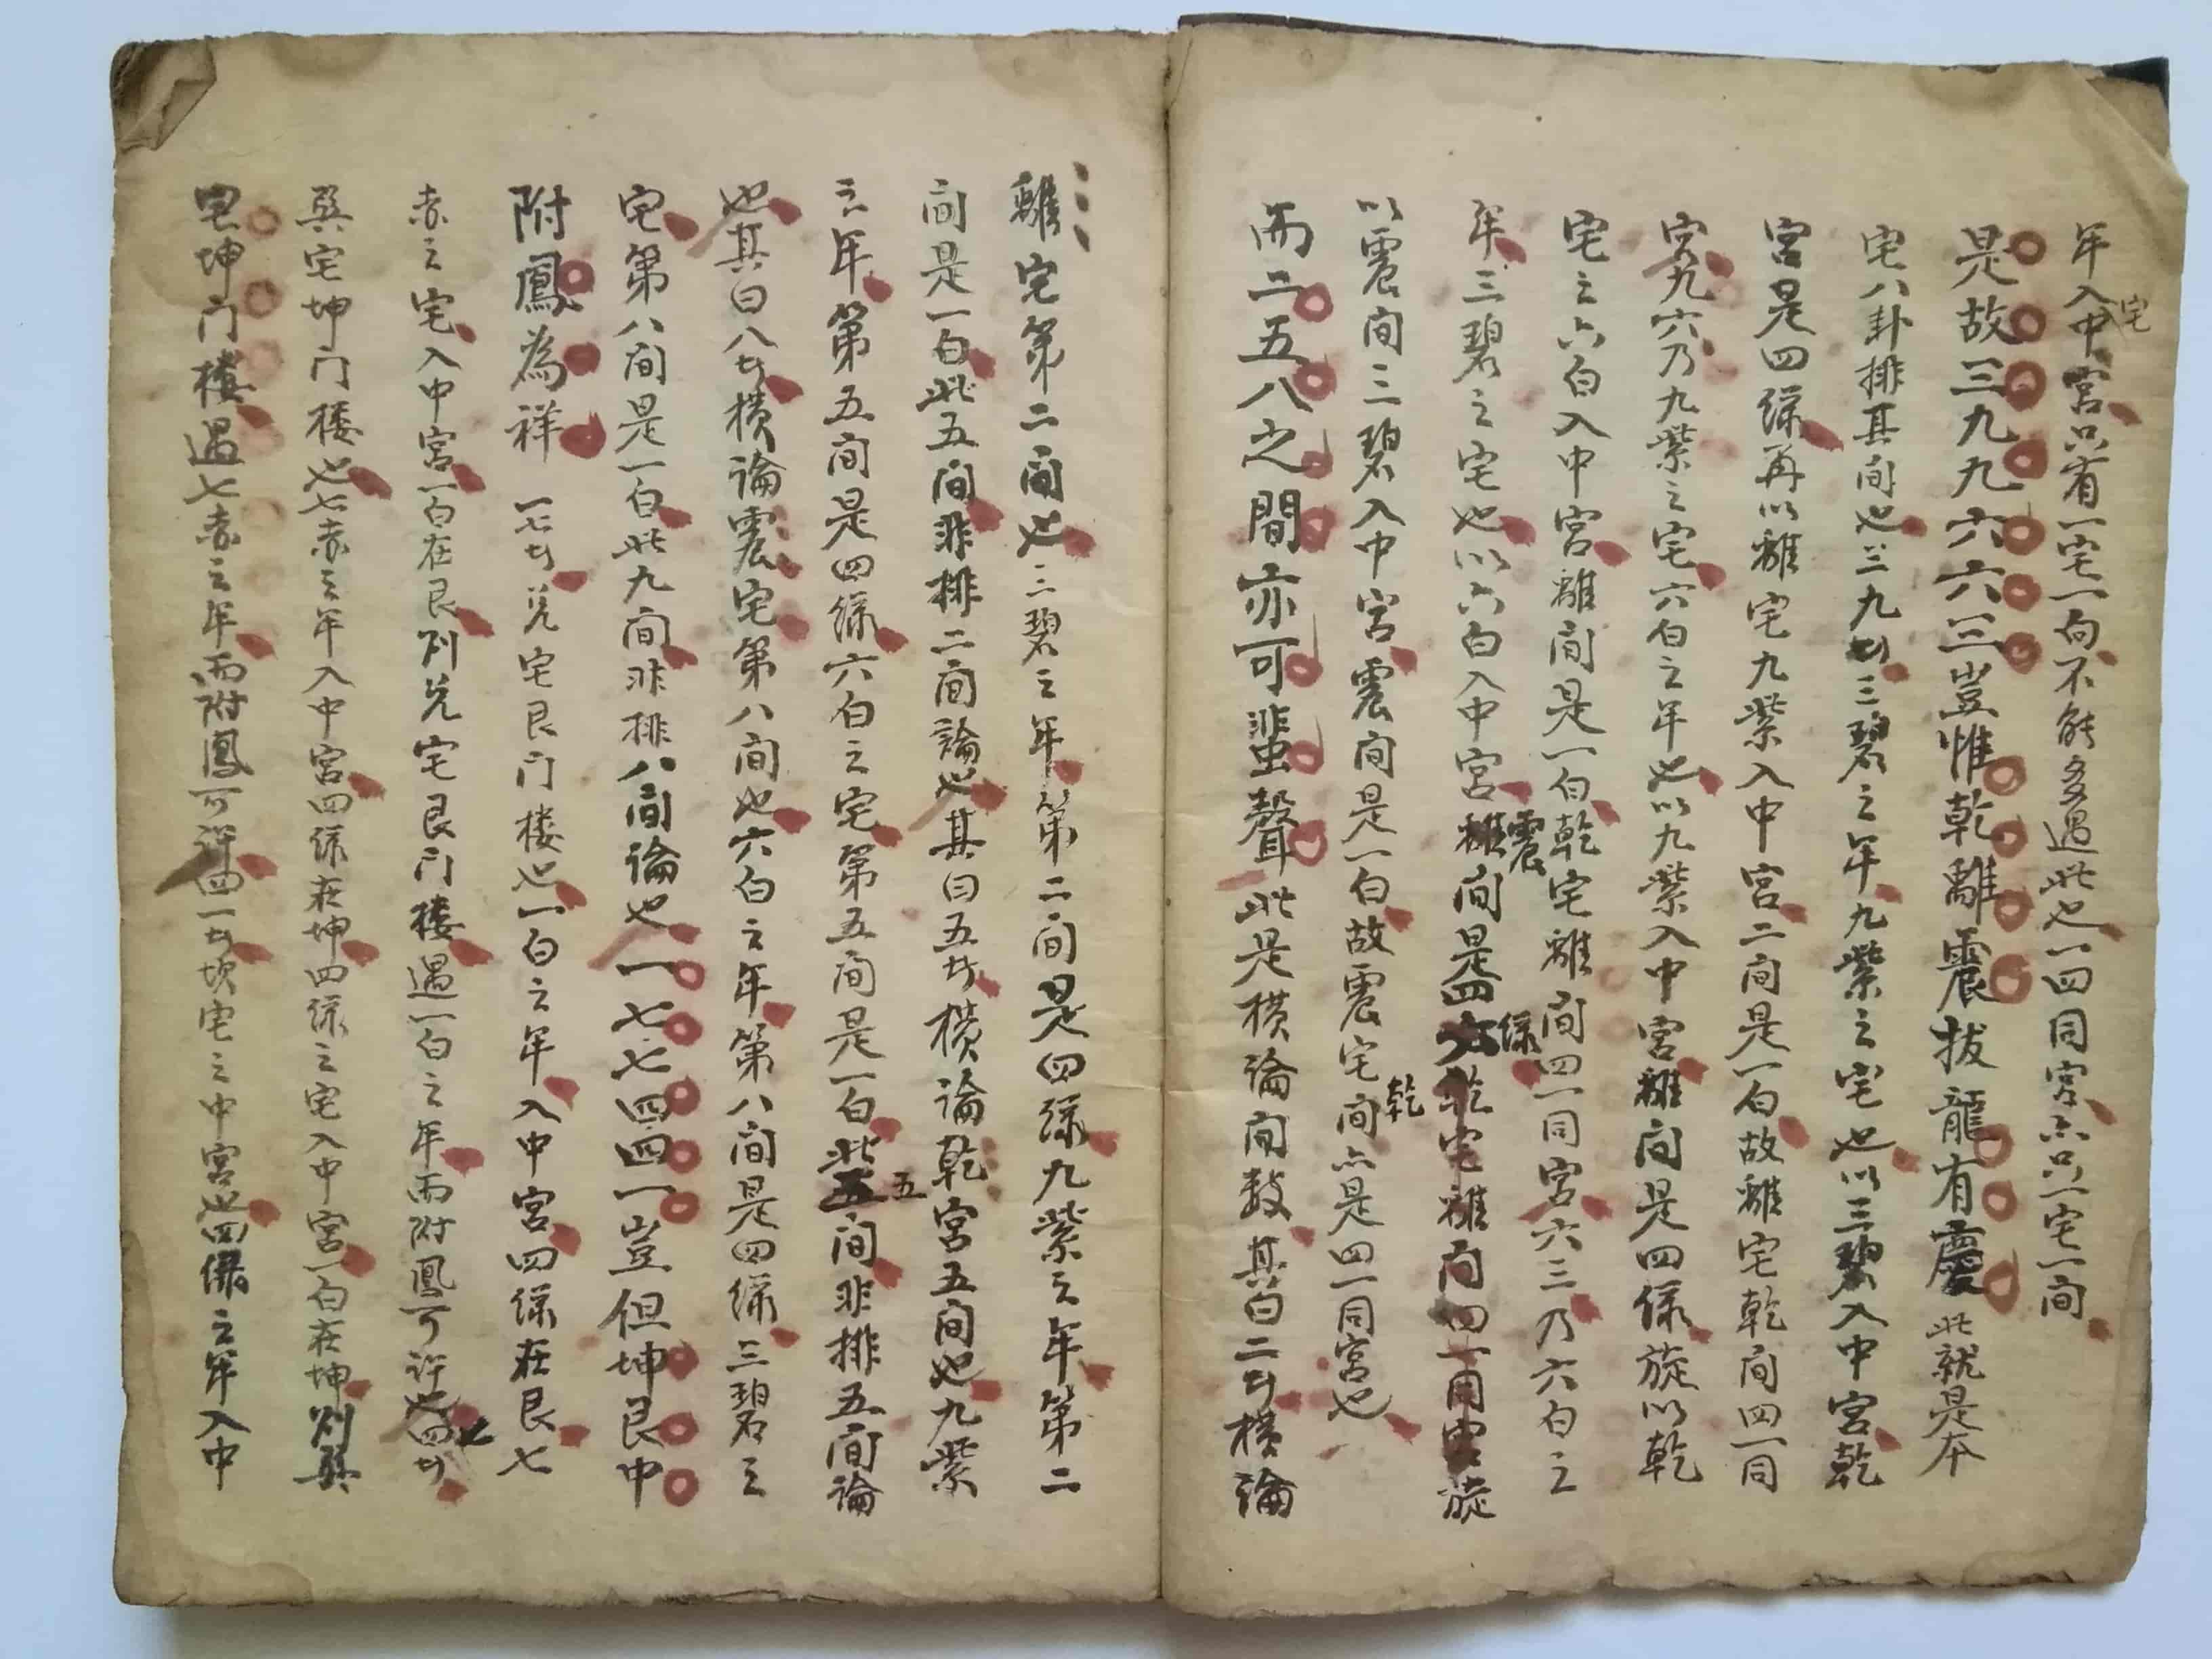 年入中宮只有一宅一向不能多遇此也一四同宮亦只一宅一间
宅
是故三九九六六三豈惟乾離震拔龍有慶此就是本
宅八卦排其间也三九者三碧之年九紫之宅也以三碧入中宮乾
宮是四綠再以離宅九紫入中宮二间是一白故離宅乾间四一同
宮九六乃九紫之宅六白之年也以九紫入中宮離间是四綠旋以乾
宅之六白入中宮離间是一白乾宅離间四一同宮六三乃六白之
年三碧之宅也以六白入中宮離间是四乾宅離间四一同宮旋
震
綠
以震间三碧入中宮震间是一白故震宅间亦是四一同宮也
乾
而二五八之間亦可蜚聲此是横論间数其曰二者横論
離宅第二间也三碧之年第二间是四綠九紫之年第二
间是一白此五间非排二间論也其曰五者横論乾宮五间也九紫
之年第五间是四綠六白之宅第五间是一白此五间非排五间論
五
也其曰八者横論震宅第八间也六白之年第八间是四綠三碧之
宅第八间是一白此九间非排八间論也一七七四四一豈但坤艮中
附鳳為祥一七者兑宅艮门楼也一白之年入中宮四綠在艮七
赤之宅入中宮一白在艮则兑宅艮门楼遇一白之年而附鳳可许也四者
七
巽宅坤门楼也七赤之年入中宮四綠在坤四綠之宅入中宮一白在坤则巽
宅坤门楼遇七赤之年而附鳳可许四一者坎宅之中宮也四綠之年入中